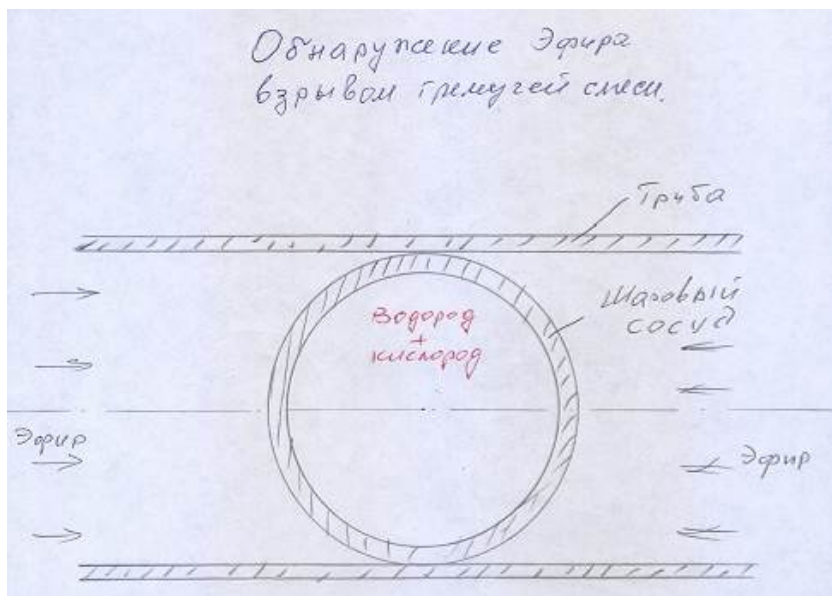 Обнаружение Эфира
взрывом гремучей смеси.
Труба
Шаровый
сосуд
Водород
+
кислород
Эфир
Эфир